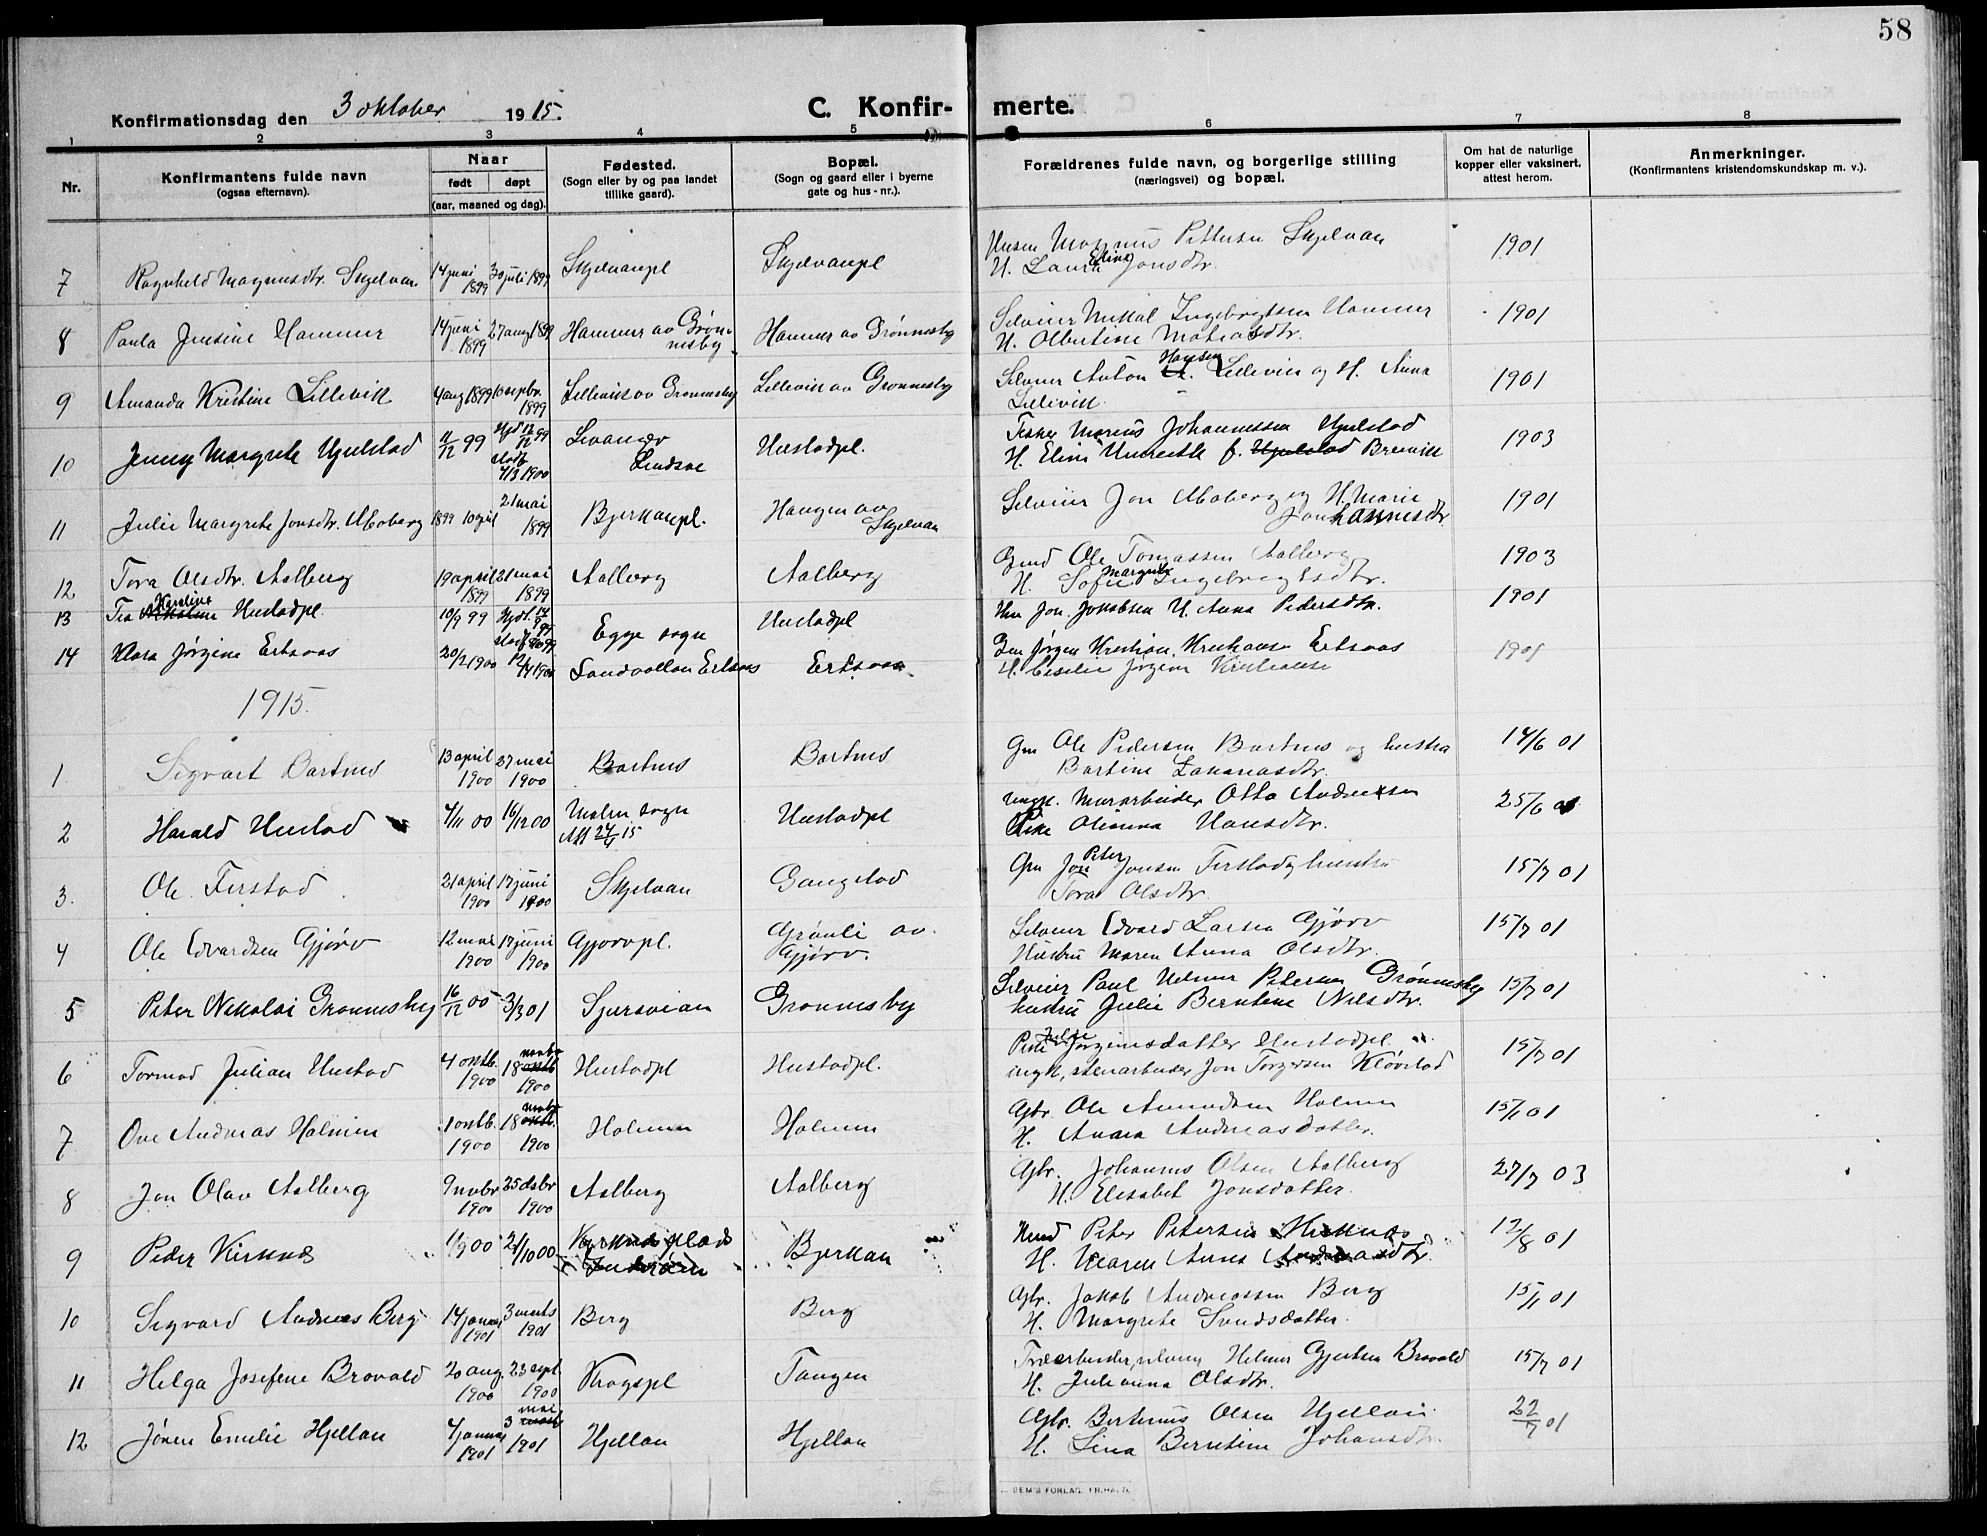 58
Konfirmationsdag den 3 oktober 1915.
C. Konfir- merte.
1 2 3 4 5 6 7 8
Nr.
Konfirmantens fulde navn
(ogsaa efternavn).
Naar
født døpt
(aar, maaned og dag).
Fødested.
(Sogn eller by og paa landet
tillike gaard).
Bopæl.
(Sogn og gaard eller i byerne
gate og hus-nr.).
Forældrenes fulde navn, og borgerlige stilling
(næringsvei) og bopæl.
Om hat de naturlige
kopper eller vaksinert,
attest herom.
Anmerkninger.
(Konfirmantens kristendomskundskap m. v.).
7 Ragnhild Magnusdtr. Skjelvan 14 juni 1899 30 juli 1899 Skjelvanpl Skjelvanpl
Magnus Pettersen Skjelvan 1901
H. Laura Eline Jonsdtr.
8 Paula Jensine Hammer 14 juni 1899 27 aug 1899 Hammer av Grønnesby Hammer av Grønnesby
Selveier Mikal Ingebrigtsen Hammer 1901
H. Olbertine Matiasdtr.
9 Amanda Kristine Lillevik 4 aug 1899 10 septbr. 1899 Lillevik av Grønnesby Lillevik av Grønnesby
Selveier Anton Hansen Lillevik og H. Anna 1901
Lillevik.
10 Jenny Margrete Hjulstad 11/12 99 Hjd 12/12 99 stadf 4/3 1900 Levanger Hustadpl.
Fisker Marius Johannessen Hjulstad 1903
H. Eline f. Hjulstad Breivik
11 Julie Margrete Jonsdtr. Moberg 1899 10 april 21 mai 1899 Bjerkanpl. Haugen av Skjelvan
Selveier Jon Moberg og H. Marie 1901
Johannesdtr
12 Tora Olsdtr. Aalberg 19 april 1899 21 mai 1899 Aalberg Aalberg
Ole Tomassen Aalberg 1903
H. Sofie Margrete Ingebrigtsdtr.
13 Tea Kristine Hustadpl. 10/9 99 Egge sogn Hustadpl
Hm Jon Jakobsen H. Anna Pedersdtr. 1901
14 Klara Jørgine Ertsaas 20/2 1900 Sandvollan Ertsaas Ertsaas
Jørgen Kristian Kristiansen Ertsaas 1901
H. Cesilie Jørgine Kristianse
1915.
1. Sigvart Bartnes 13 april 1900 27 mai 1900 Bartnes Bartnes
Gm Ole Pedersen Bartnes og hustru 14/6 01
Bartine Zakariasdtr.
2 Harald Hustad 4/11 00 16/12 00 Malm sogn Hustadpl
Att 24/4 15
Ungk. Murarbeider Otto Andressen 25/6 01
Pike Olianna Hansdtr.
3. Ole Ferstad 21 april 1900 17 juni 1900 Skjelvan Gangstad
Gm Jon Peter Jonsen Ferstad og hustru 15/7 01
Tora Olsdtr
4 Ole Edvardsen Gjørv 12 mai 1900 17 juni 1900 Gjørvpl. Grønli av Gjørv.
Selveier Edvard Larsen Gjørv 15/7 01
Hustru Maren Anna Olsdtr.
5 Peter Nikolai Grønnesby 16/12 00 3/3 01 Sjursvian Grønnesby
Selveier Paul Helmer Petersen Grønnesby 15/7 01
hustru Julie Berntine Nilsdtr.
6 Tormod Julian Hustad 4 oktb. 1900 18 novbr 1900 Hustadpl Hustadpl.
Pike Jørginesdatter Hustadpl. 15/7 01
ungk, stenarbeider Jon Torgersen Kløvstad
7 Ove Andreas Holmen 1 oktb. 1900 18 novbr 1900 Holmen Holmen
Gbr. Ole Amundsen Holmen 15/1 01
H. Anna Andreasdatter.
8 Jon Olav Aalberg 9 novbr 1900 25 dsbr 1900 Aalberg Aalberg
Gbr. Johannes Olsen Aalberg 27/7 03
H. Elisabet Jonsdatter.
9 Peder Kirknes 1/9 00 21/10 00 Kirknesplads Bjerkan
Inderøen
Peter Petersen Kirknes 12/8 01
H. Karen Anna Andreasdtr.
10 Sigvard Andreas Berg 14 januar 1901 3 marts 1901 Berg Berg
Gbr. Jakob Andreassen Berg 15/1 01
H. Margrete Svendsdatter.
11 Helga Josefine Brovold 20 aug. 1900 23 sept. 1900 Krogspl Tangen
Træarbeider, selveier Helmer Gjertsen Brovold 15/7 01
H. Julianna Olsdtr.
12 Jønne Emilie Hjellan 4 januar 1901 3 mai 1901 Hjellan Hjellan
Gbr. Berteus Olsen Hjellan 22/7 01
H. Lina Berntine Johansdtr.
FORLAG. FR.HALD.